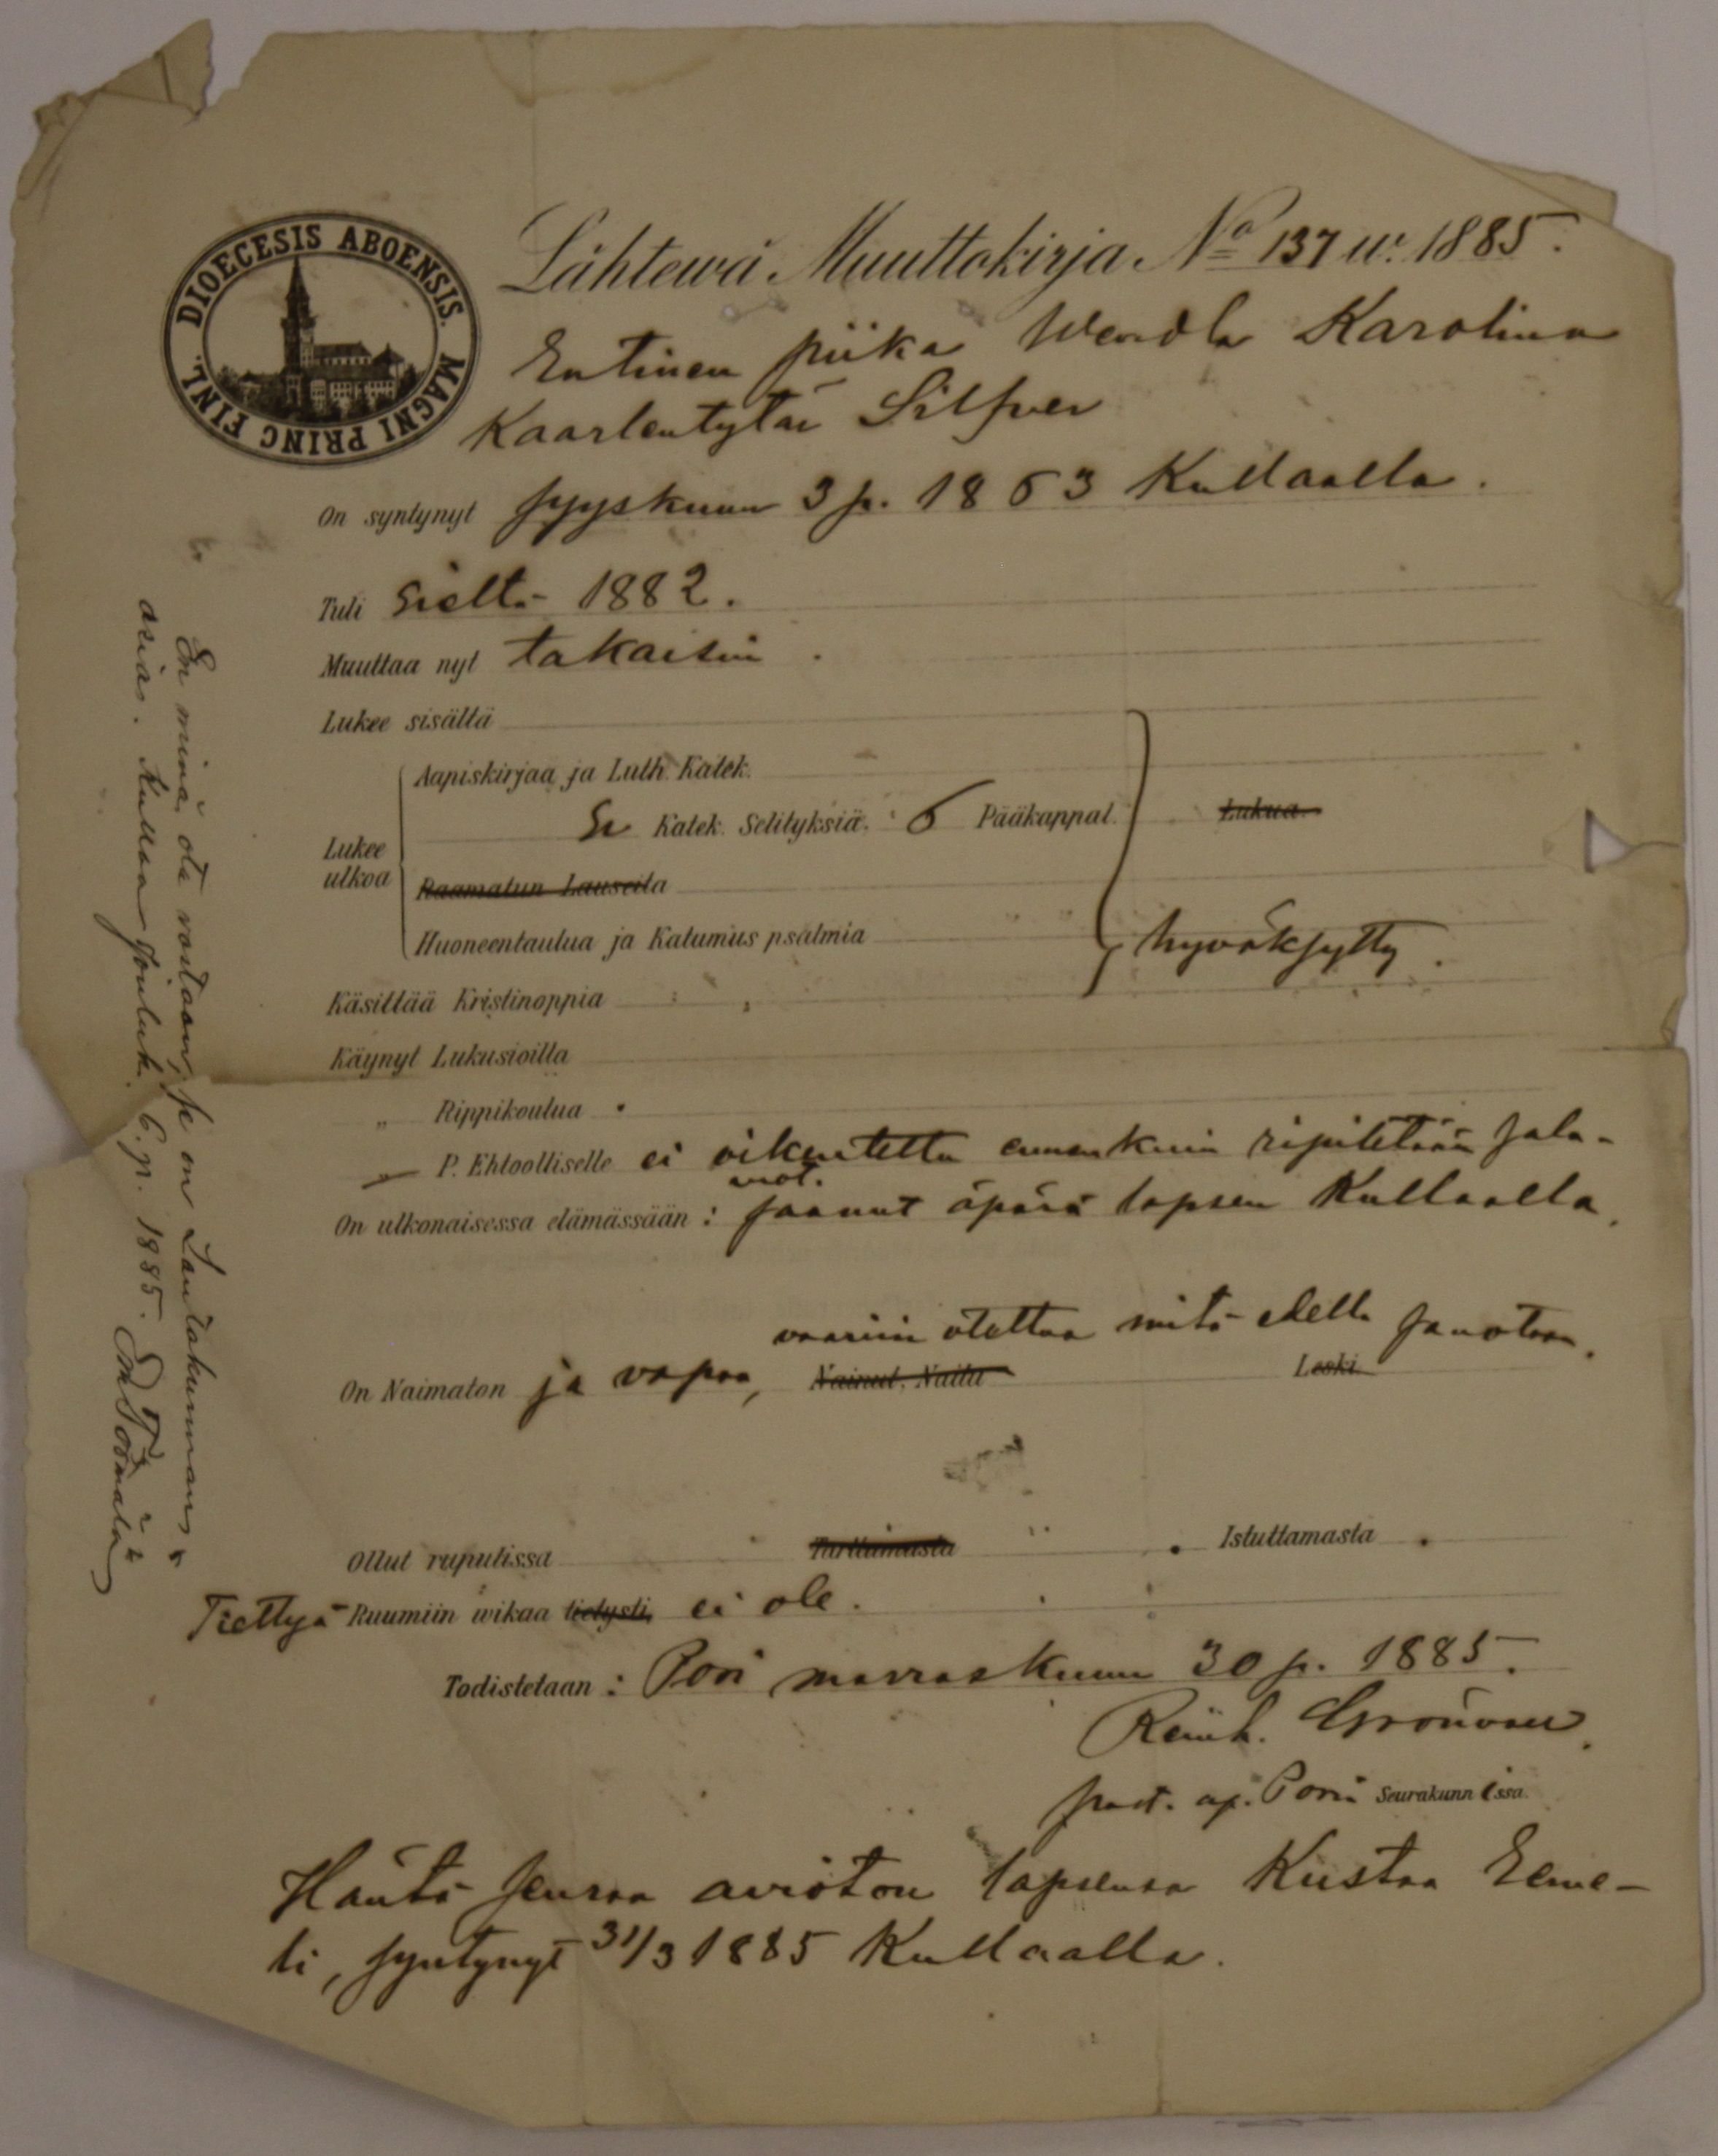 DIOECESIS ABOENSIS. MAGNI PRINC FINL.
Lähtewä Muuttokirja No 137 w. 1885.
Entinen piika Wendla Karolina
Kaarlentytär Silfver
On syntynyt syyskuun 3 p. 1863 Kullaalla.
Tuli sieltä 1882.
Muuttaa nyt takaisin.
Lukee sisältä
Lukee ulkoa
Aapiskirjaa ja Luth. Katek.
Sv Katek. Selityksiä. 6 Pääkappal. Lukua
Raamatun Lauseita
Huoneentaulua ja Katumus psalmia hyväksytty.
Käsittää Kristinoppia
Käynyt Lukusioilla
„ Rippikoulua
„ P. Ehtoolliselle ei oikeutettu ennenkuin ripitetään sala-
vuot.
On ulkonaisessa elämässään: saanut äpärä lapsen Kullaalla.
vaariin otettua mitä edellä sanotaan.
On Naimaton ja vapaa, Nainut, Naitu Leski
Ollut rupulissa Tarttumasta Istuttamasta
Tiettyä Ruumiin wikaa tietysti, ei ole.
Todistetaan: Pori marraskuun 30 p. 1885.
Reinh. Grönvall.
past. ap. Porin Seurakunnissa.
Häntä seuraa avioton lapsensa Kustaa Eeme-
li, syntynyt 31/3 1885 Kullaalla.
En minä ota vastaan, se on Lautakunnan
asia. Kullaa Jouluk. 6. p. 1885.